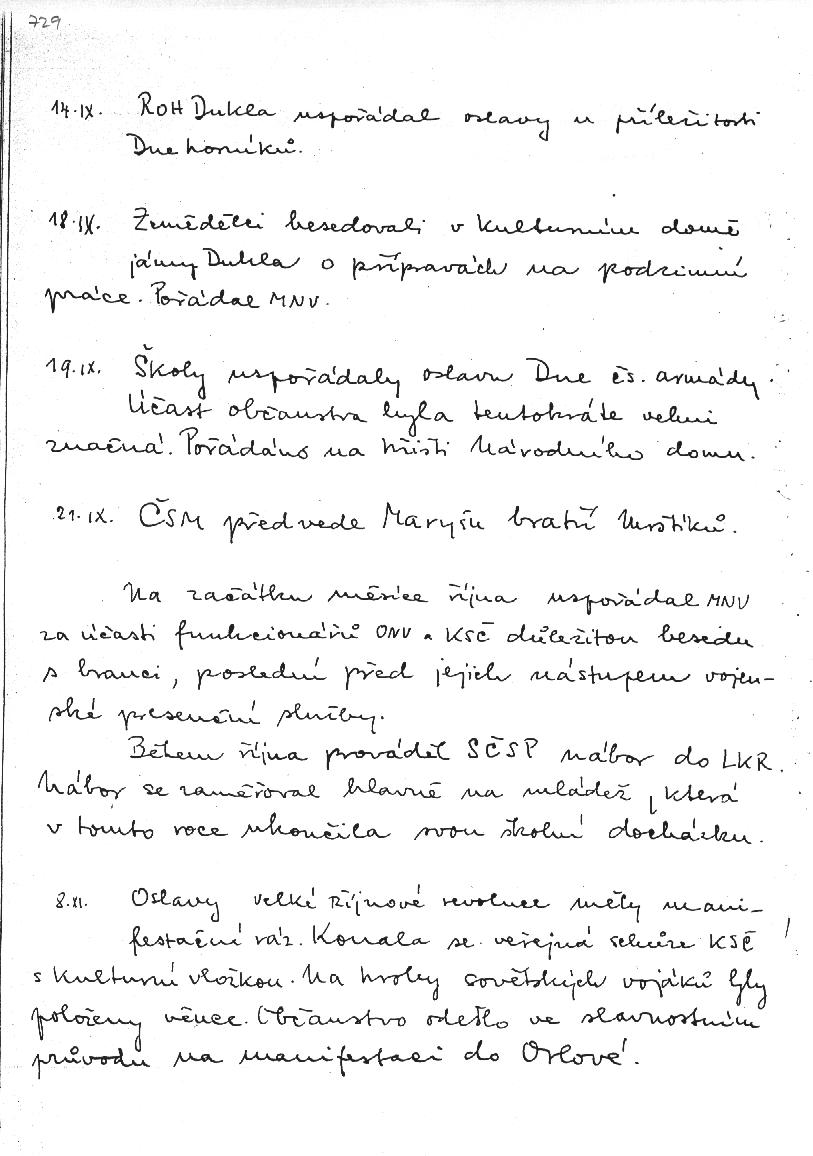 729
14.IX. ROH Dukla uspořádal oslavy u příležitosti
Dne horníků.
18.IX. Zemědělci besedovali v Kulturním domě
jámy Dukla o přípravách na podzimní
práce. Pořádal MNV.
19.IX. Školy uspořádaly oslavu Dne čs. armády.
Účast občanstva byla tentokráte velmi
značná. Pořádáno na hřišti Národního domu.
21.IX. ČSM předvede Maryšu bratří Mrštíků.
Na začátku měsíce října uspořádal MNV
za účasti funkcionářů ONV a KSČ důležitou besedu
s branci, poslední před jejich nástupem vojen-
ské presenční služby.
Během října prováděl SČSP nábor do LKR.
Nábor se zaměřoval hlavně na mládež, která
v tomto roce ukončila svou školní docházku.
8.XI. Oslavy velké Říjnové revoluce měly mani-
festační ráz. Konala se veřejná schůze KSČ
s kulturní vložkou. Na hroby sovětských vojáků byly
položeny věnce. Občanstvo odešlo ve slavnostním
průvodu na manifestaci do Orlové.